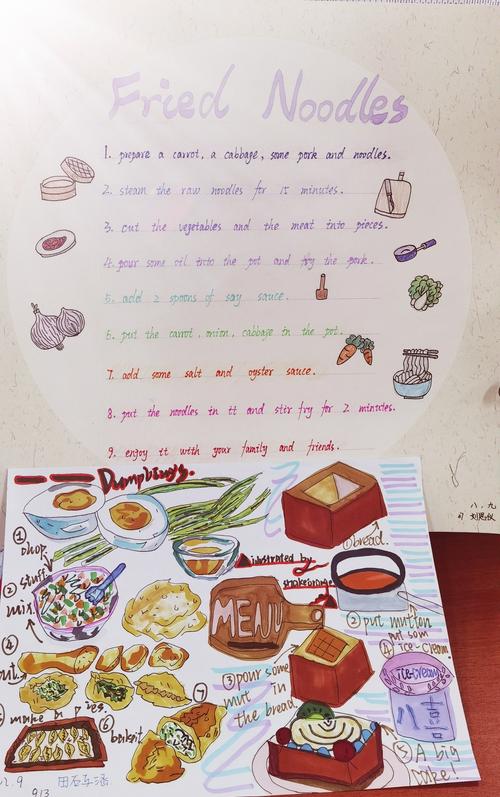 Fried Noodles
1. prepare a carrot, a cabbage, some pork and noodles.
2. steam the raw noodles for 15 minutes.
3. cut the vegetables and the meat into pieces.
4. pour some oil into the pot and fry the pork.
5. add 2 spoons of say sauce.
6. put the carrot, onion, cabbage in the pot.
7. add some salt and oyster sauce.
8. put the noodles in tt and stir fry for 2 minutes.
9. enjoy it with your family and friends.
八.九
Dumplings.
① chop
② stuff
mix
④
⑥
⑦
MENU
by
① bread.
② put mutton
③ pour some
in
the bread
④
ice-cream.
ice-cream
八喜
⑤ A big
cake!
2.9
913